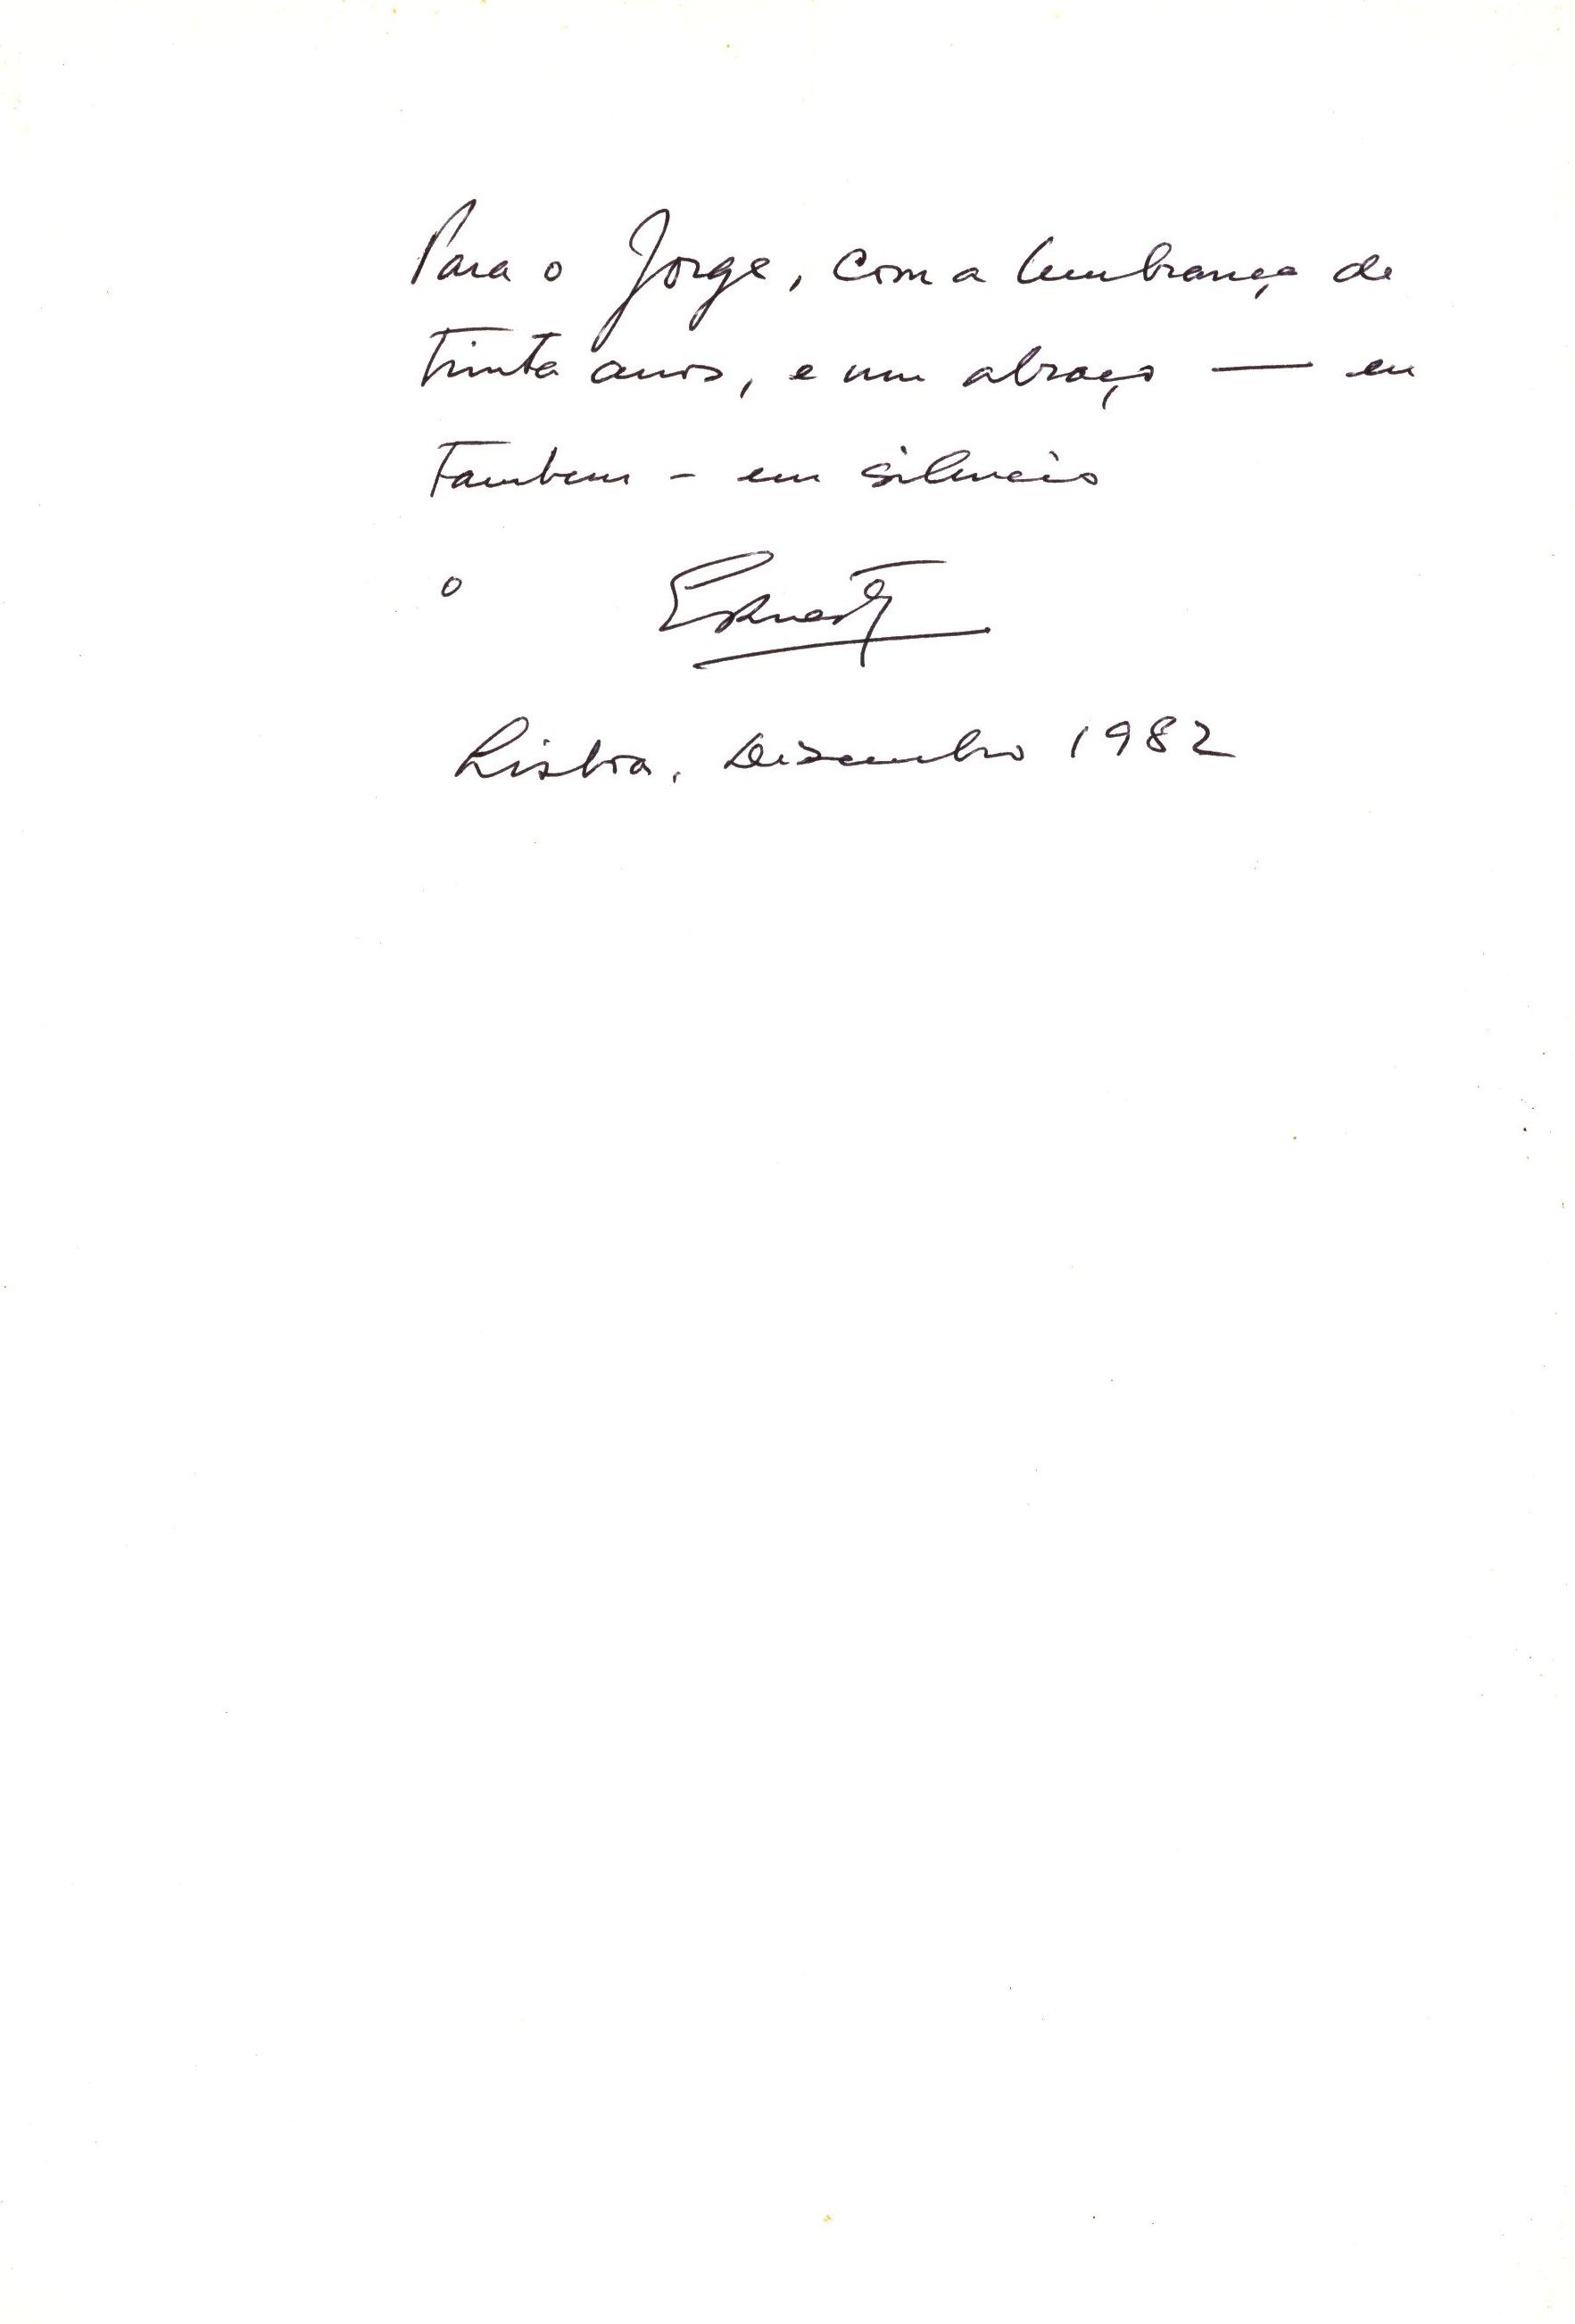 Para o Jorge, com a lembrança de
trinta anos, e um abraço — eu
tambem - em silencio
o Ernesto
Lisboa, Dezembro 1982